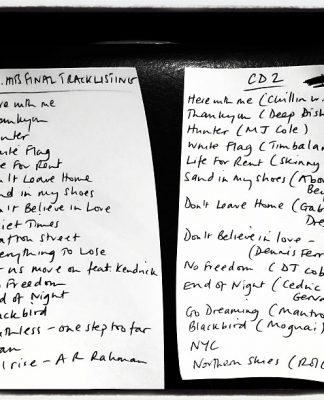 MB FINAL TRACKLISTING
re with me
ankyou
unter
ite Flag
e For Rent
n't Leave Home
nd in my Shoes
n't Believe in Love
iet Times
afton street
erything To Lose
t us move on feat Kendrick
o Freedom
d of Night
ackbird
thless - one step too far
an
l rise - A R Rahman
CD 2
Here with me (Chillin w
Thankyou (Deep Dish
Hunter (MJ Cole)
White Flag (Timbalan
Life For Rent (Skinny
Sand in my Shoes (Abo
Be
Don't Leave Home (Gab
Dre
Don't Believe in love -
(Dennis Ferr
No Freedom (DJ Cob
End of Night (Cedric
Gerv
Go Dreaming (Mantro
Blackbird (Mogwai)
NYC
Northern Skies (Rol